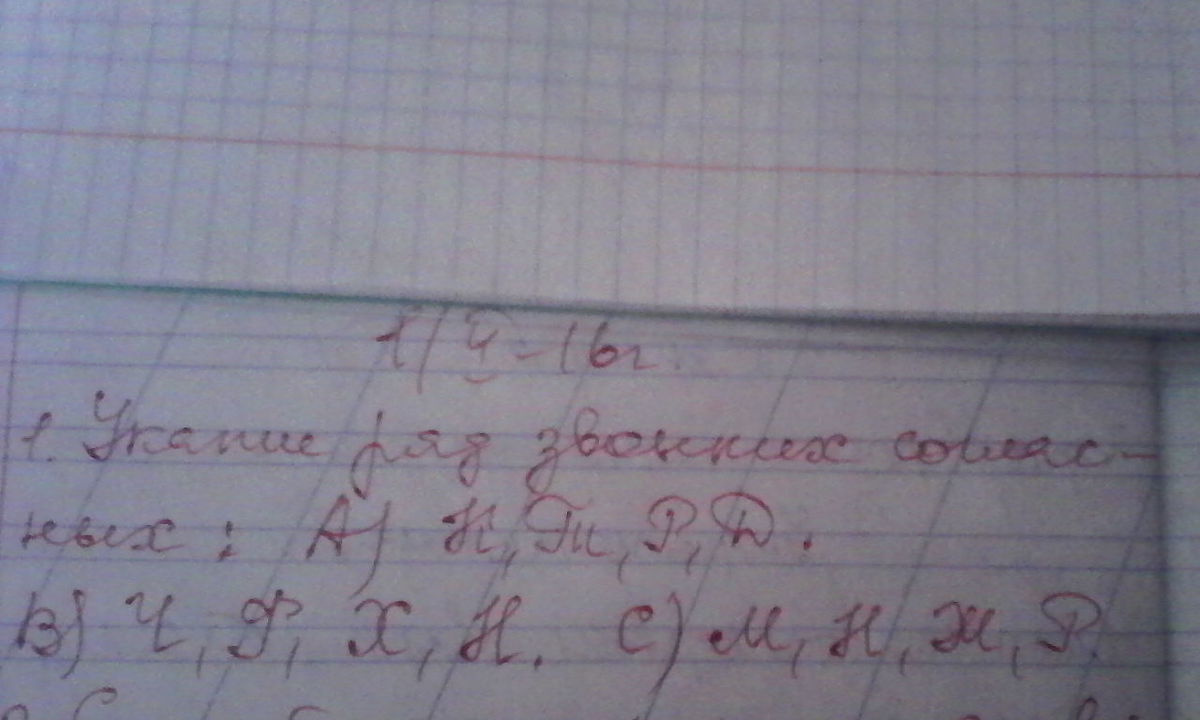 1/IV-16г.
1. Укажи ряд звонких соглас-
ных: А) Н, Т, Р, Д.
В) Ч, Ф, Х, Н. С) М, Н, Ж, Р.